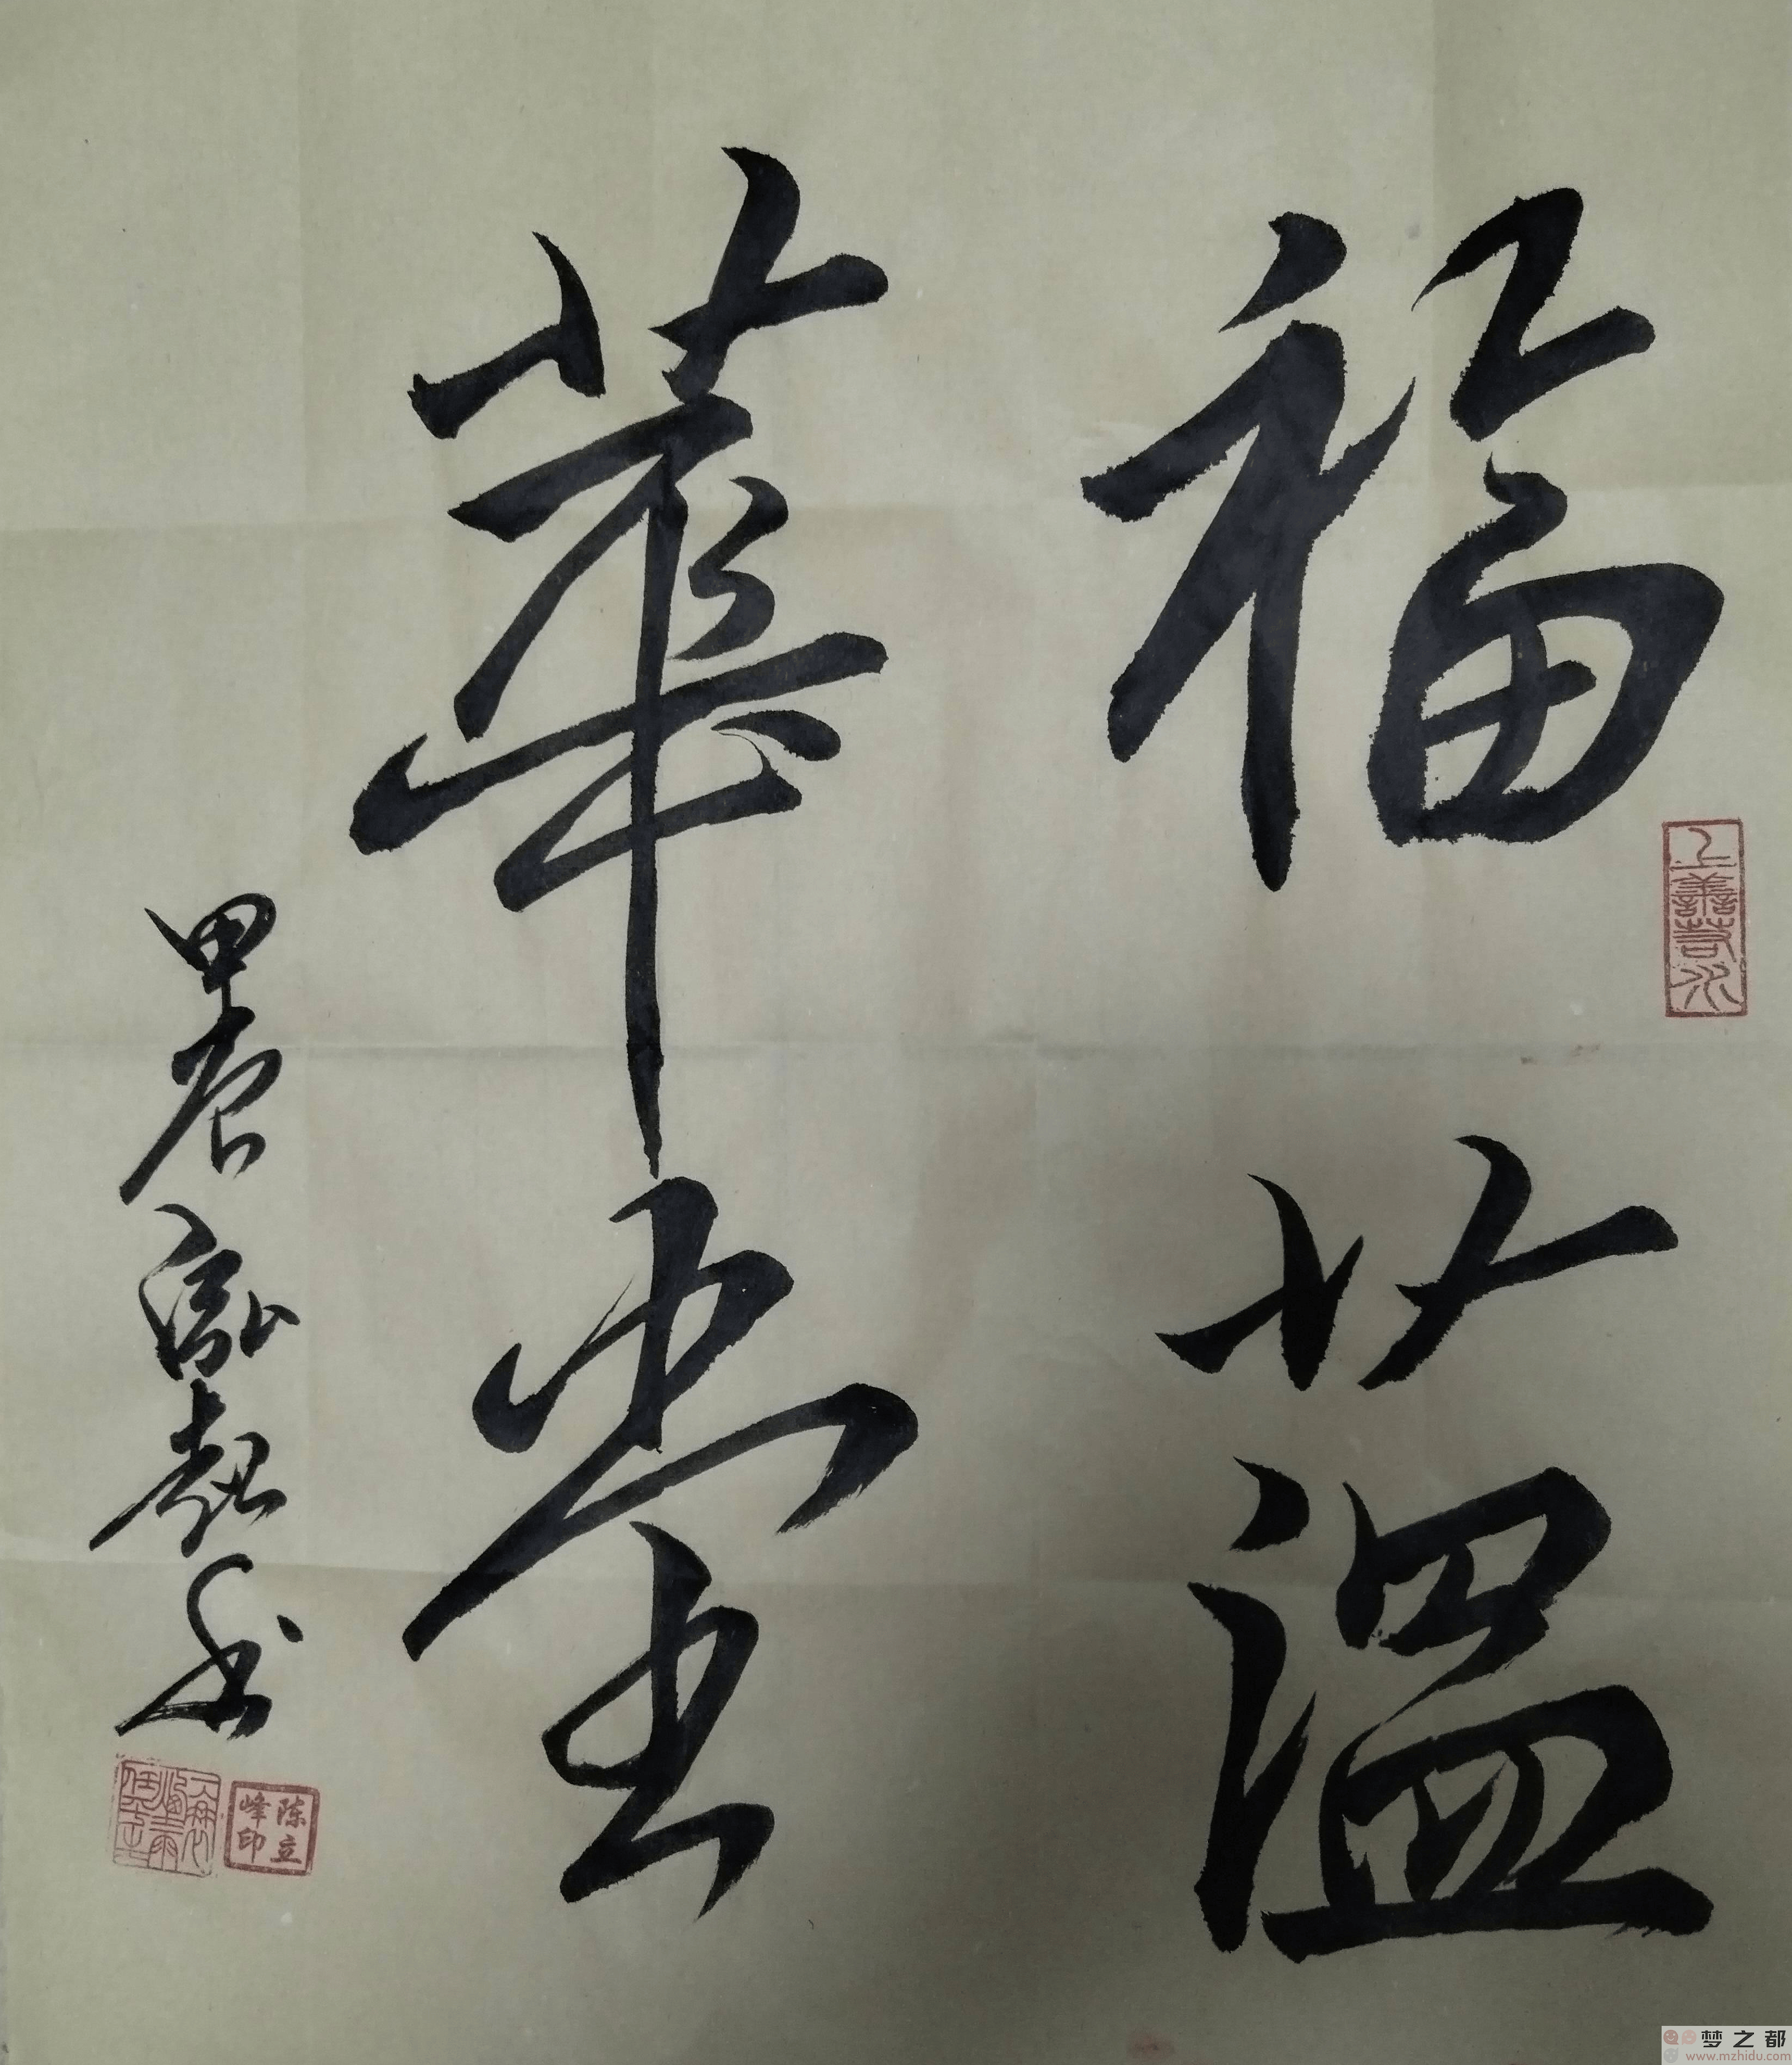 福蕰
華堂
甲辰
上善若水
陈立
峰印
梦之都
www.mzhidu.com